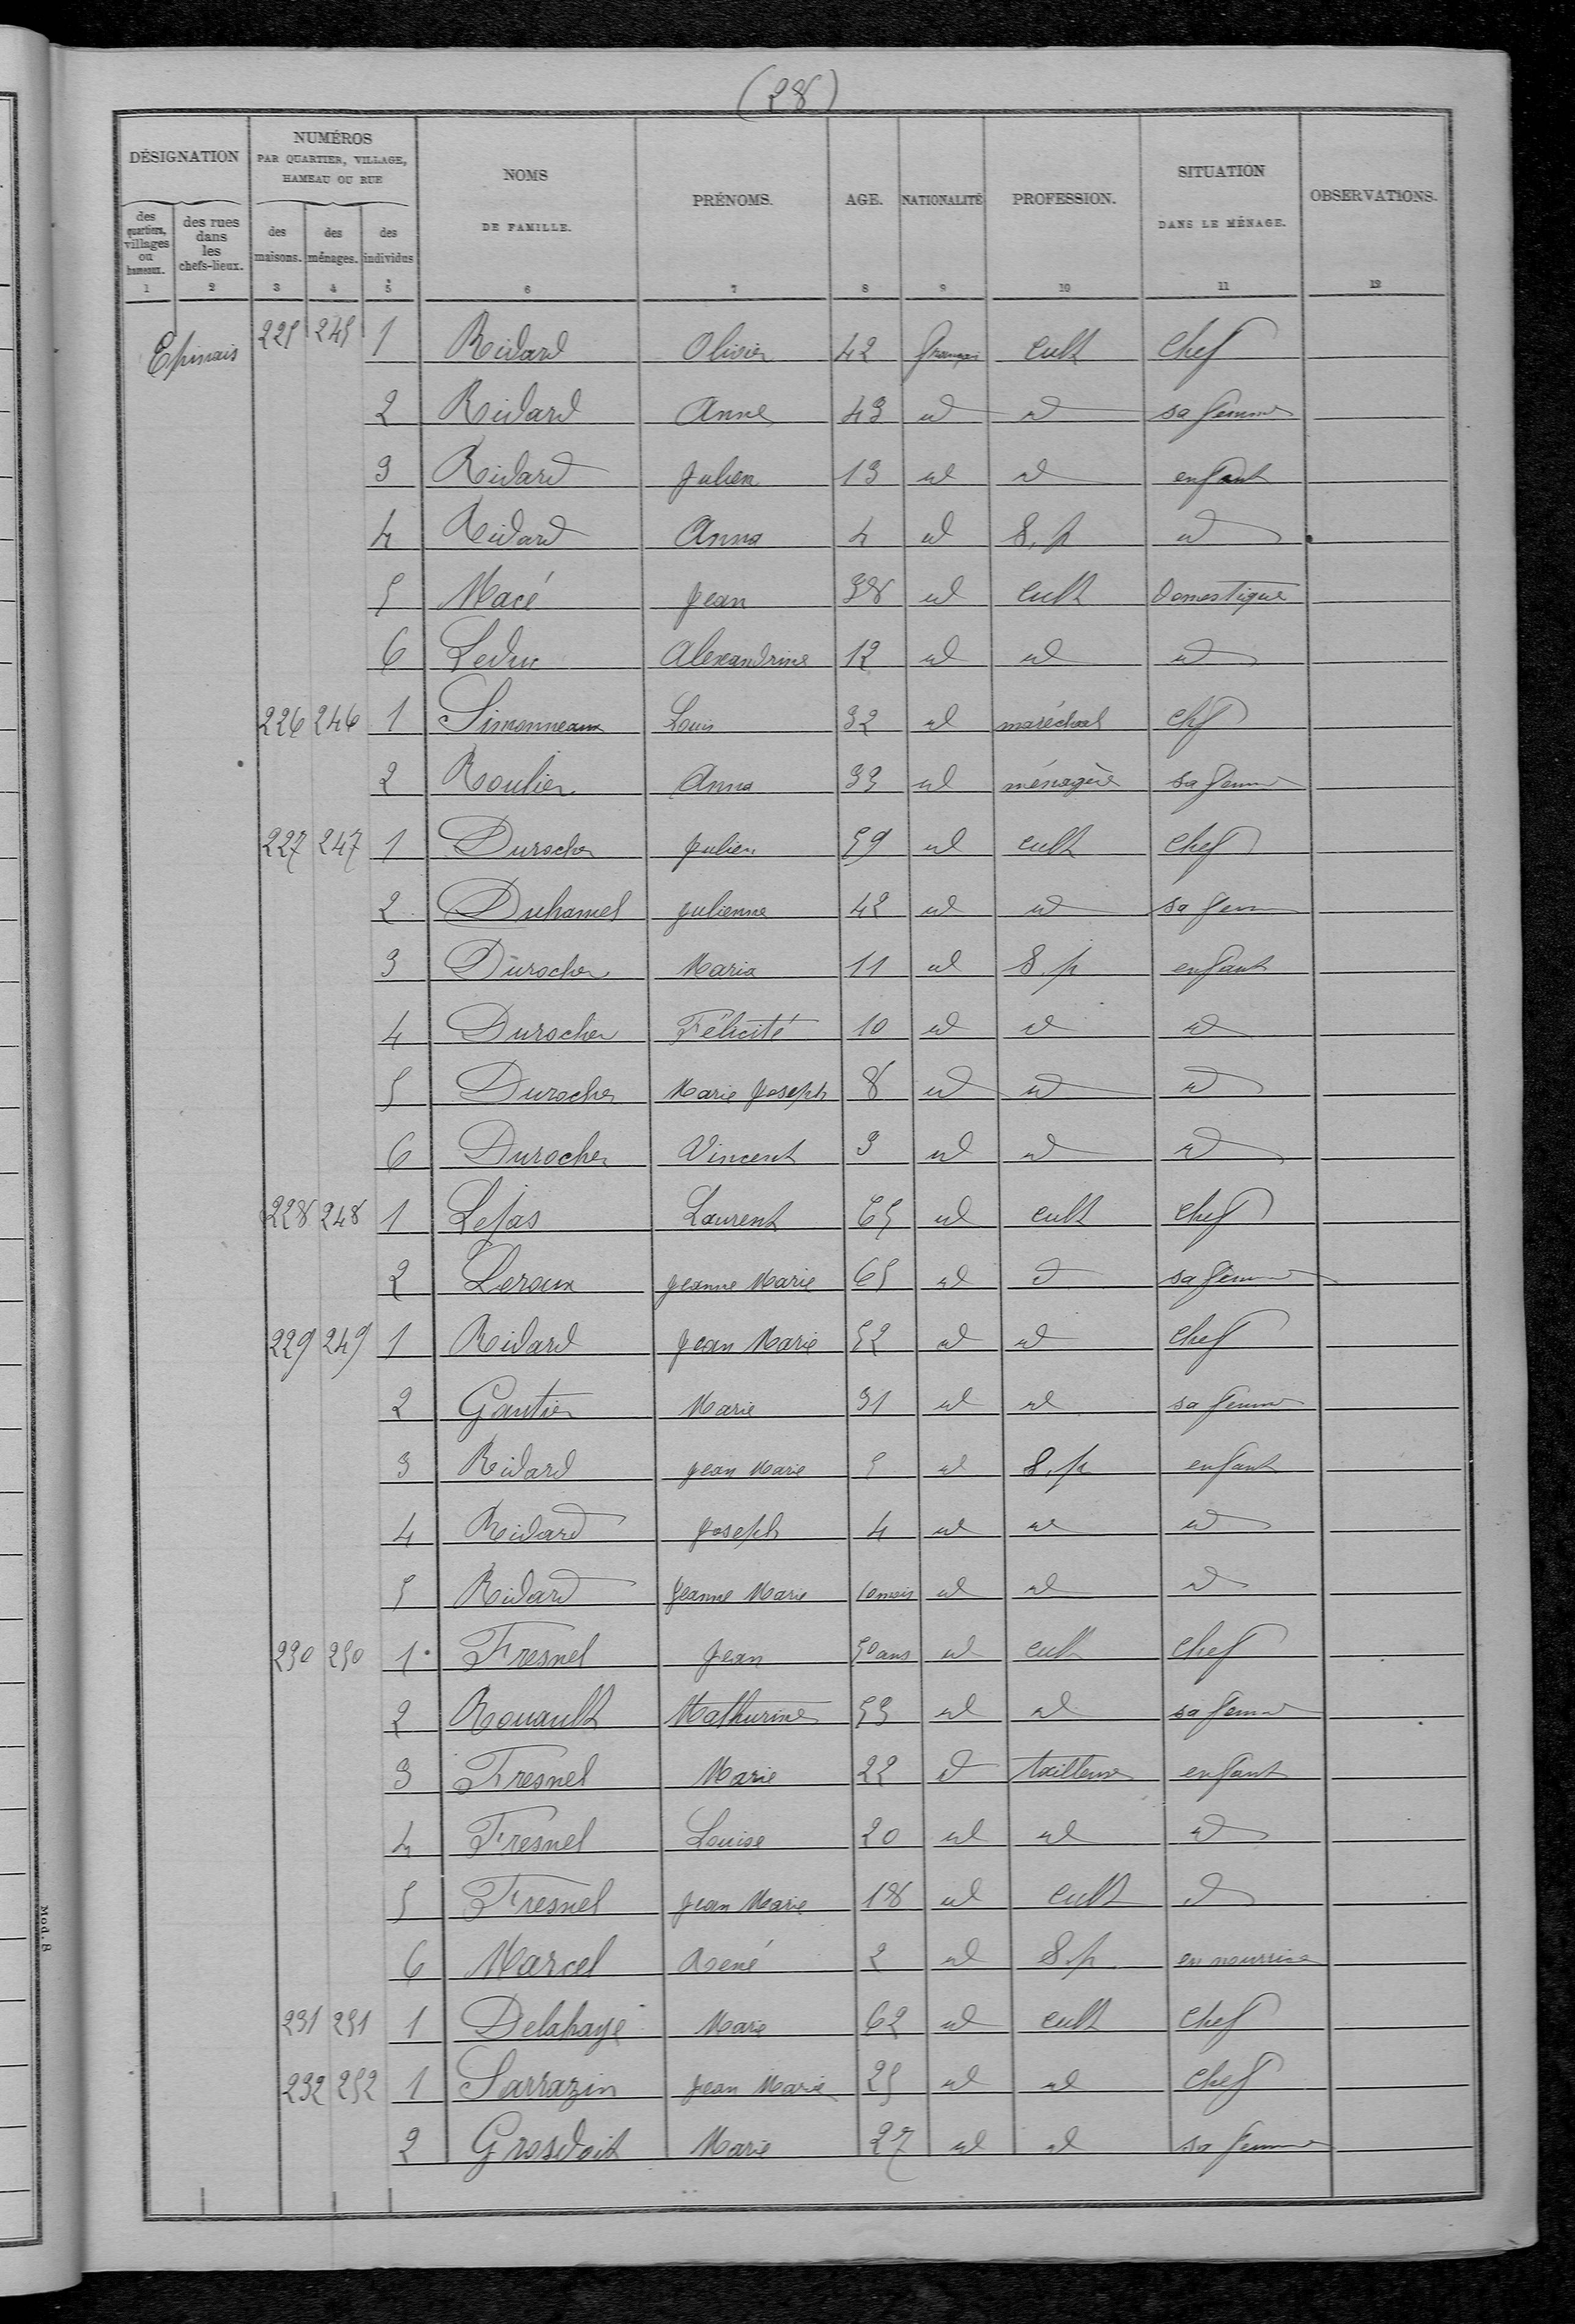 (28)
DÉSIGNATION
NUMÉROS
PAR QUARTIER, VILLAGE,
HAMEAU OU RUE
NOMS
DE FAMILLE.
PRÉNOMS.
AGE.
NATIONALITÉ
PROFESSION.
SITUATION
DANS LE MÉNAGE.
OBSERVATIONS.
des quartiers, villages ou hameaux.
des rues dans les chefs-lieux.
des maisons.
des ménages.
des individus
1 2 3 4 5 6 7 8 9 10 11 12
Epinais 225 245 1 Ridard Olivier 42 français cult chef
2 Ridard Anne 43 id id sa femme
3 Ridard Julien 13 id id enfant
4 Ridard Anna 4 id S. p id
5 Macé Jean 38 id cult Domestique
6 Leduc Alexandrine 12 id id id
226 246 1 Simonneaux Louis 32 id maréchal chef
2 Roulier Anna 33 id ménagère sa femme
227 247 1 Durocher Julien 59 id cult chef
2 Duhamel Julienne 42 id id sa fem
3 Durocher Maria 11 id S. p enfant
4 Durocher Félicité 10 id id id
5 Durocher Marie Joseph 8 id id id
6 Durocher Vincent 3 id id id
228 248 1 Lejas Laurent 65 id cult chef
2 Leroux Jeanne Marie 65 id d sa femme
229 249 1 Ridard Jean Marie 52 id id chef
2 Gautier Marie 31 id id sa femme
3 Ridard Jean Marie 5 id S. p enfant
4 Ridard Joseph 4 id id id
5 Ridard Jeanne Marie 10 mois id id id
230 250 1 Fresnel Jean 50 ans id cult chef
2 Rouault Mathurine 53 id id sa femme
3 Fresnel Marie 22 d tailleuse enfant
4 Fresnel Louise 20 id id id
5 Fresnel Jean Marie 18 id cult d
6 Marcel René 2 id S. p. en nourrice
231 251 1 Delahaye Marie 62 id cult chef
232 252 1 Sarrazin Jean Marie 25 id id chef
2 Grosdoit Marie 27 id id sa femme
Mod. 8